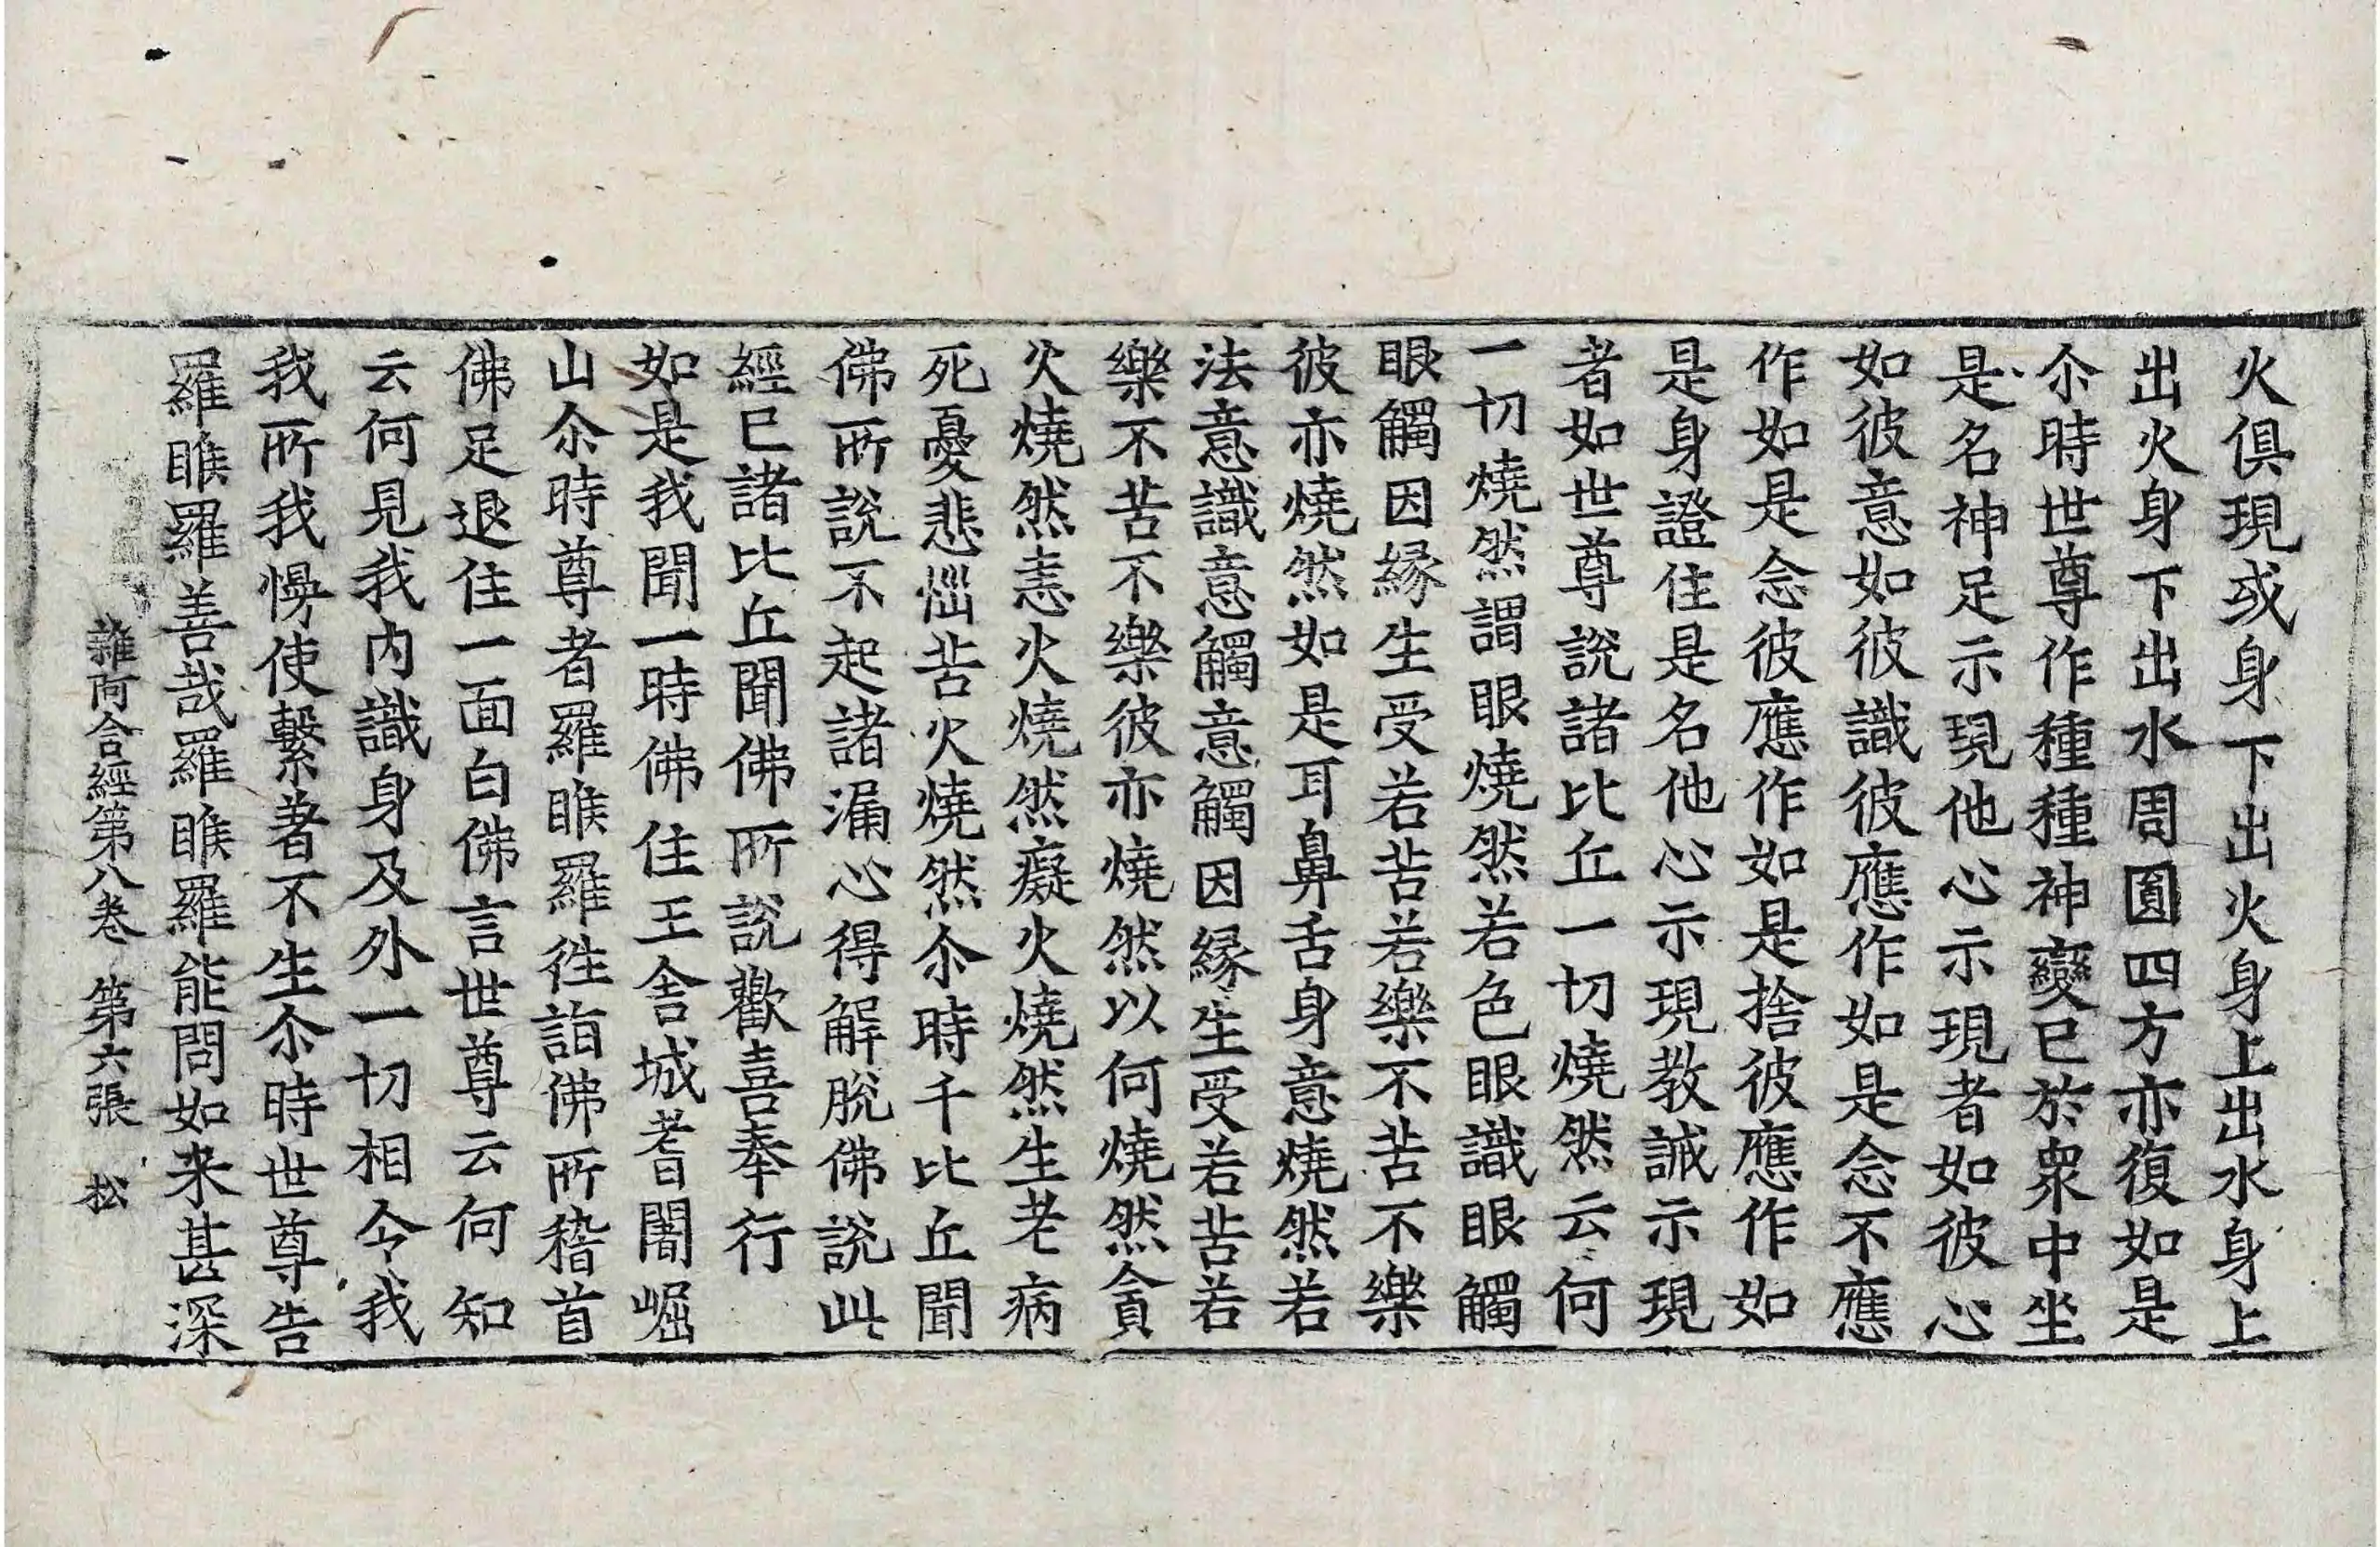 火俱現或身下出火身上出水身上
出火身下出水周圓四方亦復如是
尒時世尊作種種神變已於衆中坐
是名神足示現他心示現者如彼心
如彼意如彼識彼應作如是念不應
作如是念彼應作如是捨彼應作如
是身證住是名他心示現教誡示現
者如世尊說諸比丘一切燒然云何
一切燒然謂眼燒然若色眼識眼觸
眼觸因縁生受若苦若樂不苦不樂
彼亦燒然如是耳鼻舌身意燒然若
法意識意觸意觸因縁生受若苦若
樂不苦不樂彼亦燒然以何燒然貪
火燒然恚火燒然癡火燒然生老病
死憂悲惱苦火燒然尒時千比丘聞
佛所說不起諸漏心得解脫佛說此
經已諸比丘聞佛所說歡喜奉行
如是我聞一時佛住王舍城耆闍崛
山尒時尊者羅睺羅往詣佛所稽首
佛足退住一面白佛言世尊云何知
云何見我内識身及外一切相令我
我所我慢使繫著不生尒時世尊告
羅睺羅善哉羅睺羅能問如来甚深
雜阿含經第八卷 第六張 松